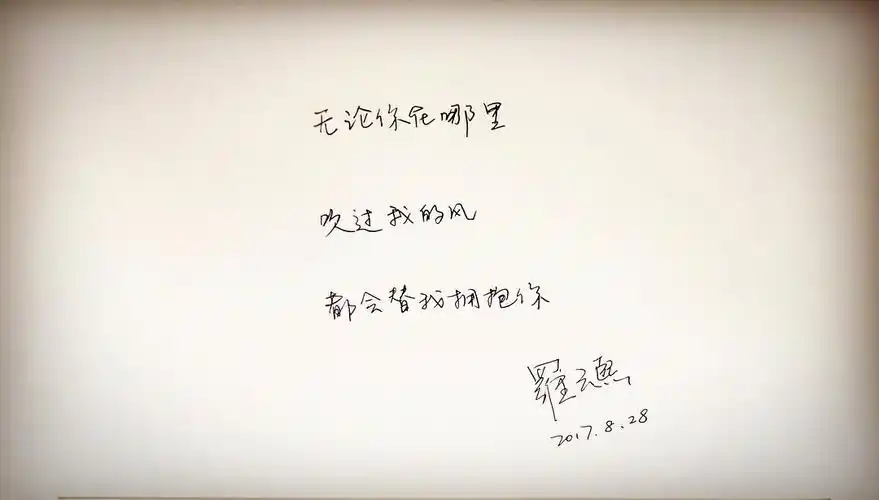 无论你在哪里
吹过我的风
都会替我拥抱你
羅云熙
2017.8.28